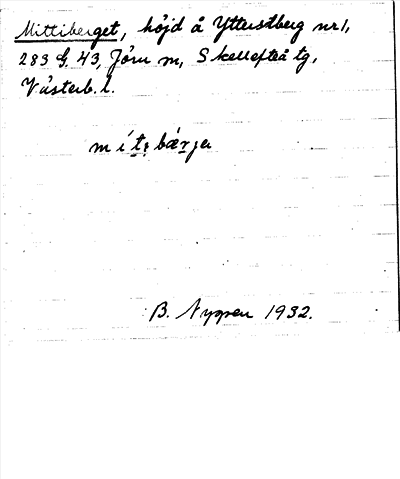 Mittiberget, höjd å Ytterstberg nr 1,
283 G. 43, Jörn sn, Skellefteå tg,
Västerb. l.
mítıbǽrja
B. Nygren 1932.